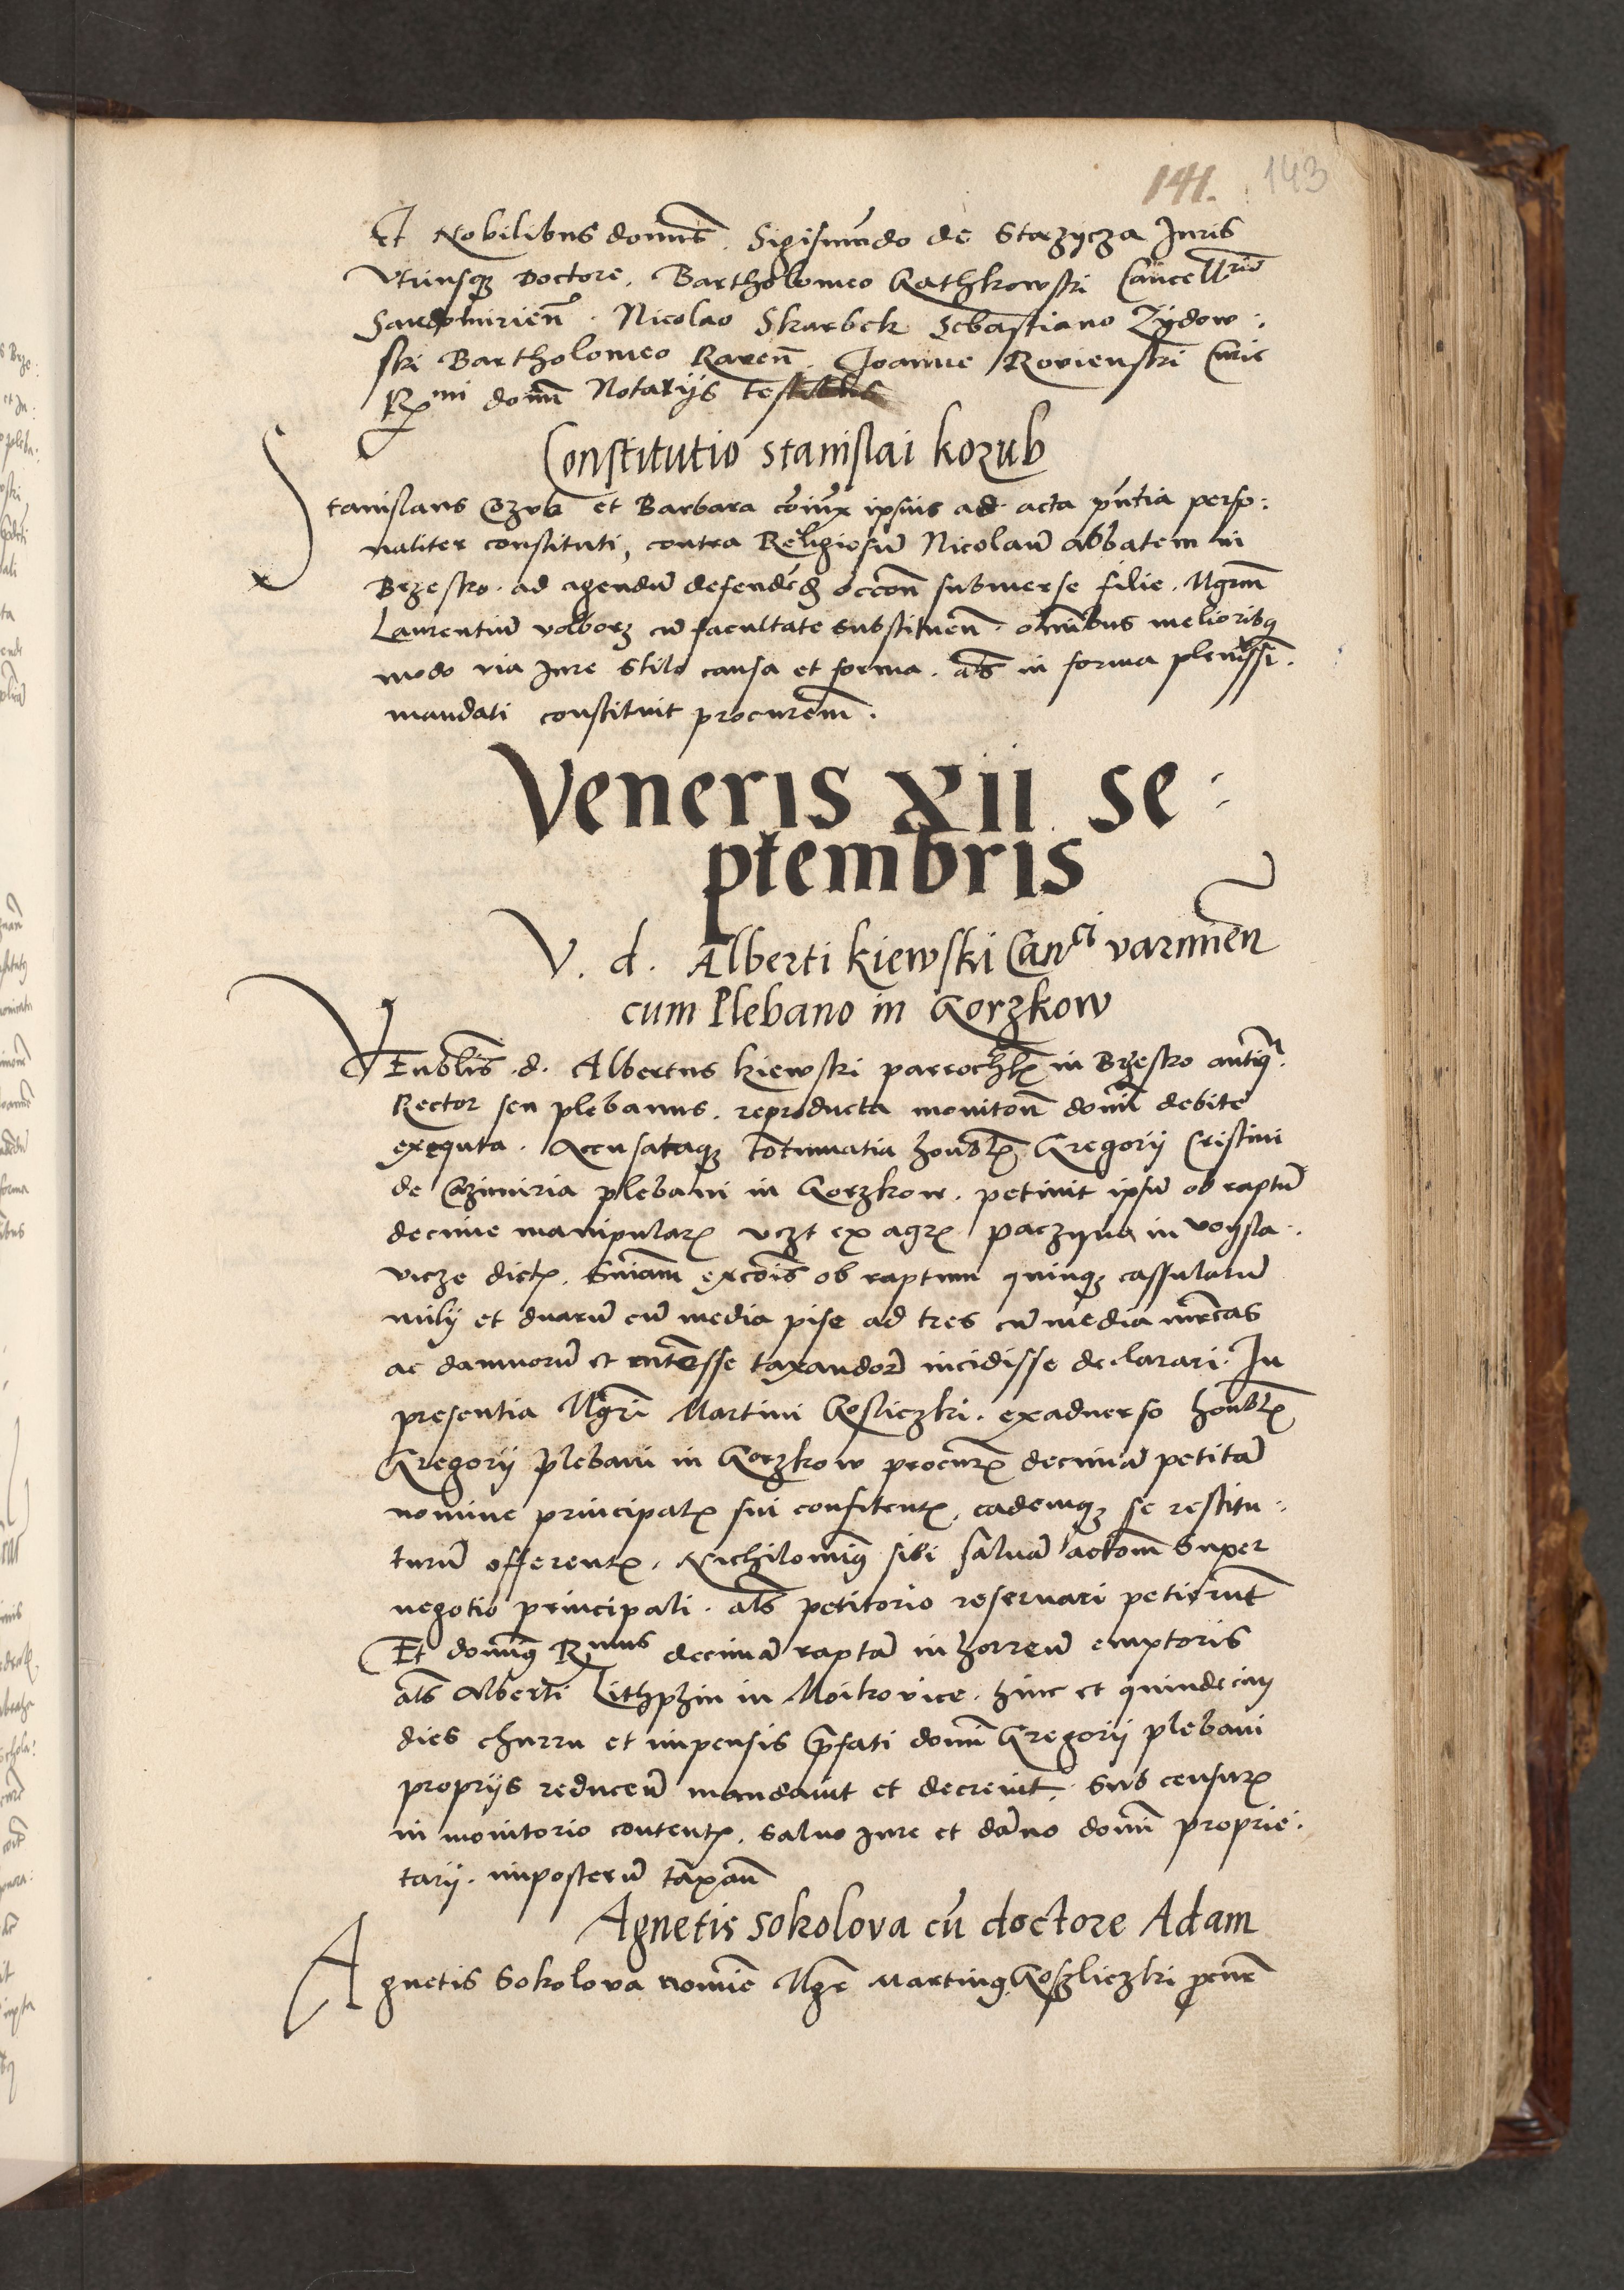 141. 143
Et Nobilibus domīs. Sigismūdo de Starzycza Juris
Vtriusqz Doctore. Bartholomeo Gathkowski Cancellrio
Sandomirieñ. Nicolao Skarbek Sebastiano Zydow:
ski Bartholomeo Raveñ. Joanne Rovienski Curie
Rmi domī Notarijs testibus
Constitutio stanislai kozub
Stanislaus Cozub et Barbara cōiux ipsius ad acta pñtia perso:
naliter constituti, contra Religiosū Nicolaū abbatem in
Brzesko. ad agendū defendēd occōn submerse filie. Mgrm
Laurentiū volborz cū facultate substituēn. omnibus melioribq
modo via Jure stilo causa et forma. als in forma plenissi.
mandati constituit procurem.
Veneris XII se:
ptembris
V. d. Alberti kiewski Canci varmieñ
cum Plebano in Gorzkow
VEnblis .d. Albertus kiewski parrochlis in Brzesko antiqa.
Rector seu plebanus. reproducta monitoñ domī debite
exequta. Accusataqz cotumatia honblis Gregorij Cristini
de Cazimiria plebani in Gorzkow. petiuit ipsū ob raptū
decime manipularis vczt ex agris Paczyna in voysla.
vicze dictis. snīam excōis ob raptum quinqz cassularū
milij et duarū cū media pise ad tres cū media mrcas
ac damnorū et interesse taxandorū incidisse declarari. In
presentia Mgri Martini Gosliczki. exaduerso honblis
Gregorij plebani in Gorzkow procuris decimā petitā
nomine principalis sui confitentis, eademqz se restitu:
turū offerentis. Nichilominq sibi saluā actōm super
negotio principali. als petitorio reseruari petierūt
Et dominq Rmus decimā raptā in horreū emptoris
als Alberti Lithphin in Moikovice. hinc et quindecim
dies churru et impensis p̄fati domī Gregorij plebani
proprijs reducēn mandauit et decreuit. sub censuris
in monitorio contentis. saluo jure et dāno domī proprie:
tarij. imposterū taxañ
Agnetis sokolova cū doctore Adam
Agnetis Sokolova nomie Mgr Martinq Goszliczki pcure